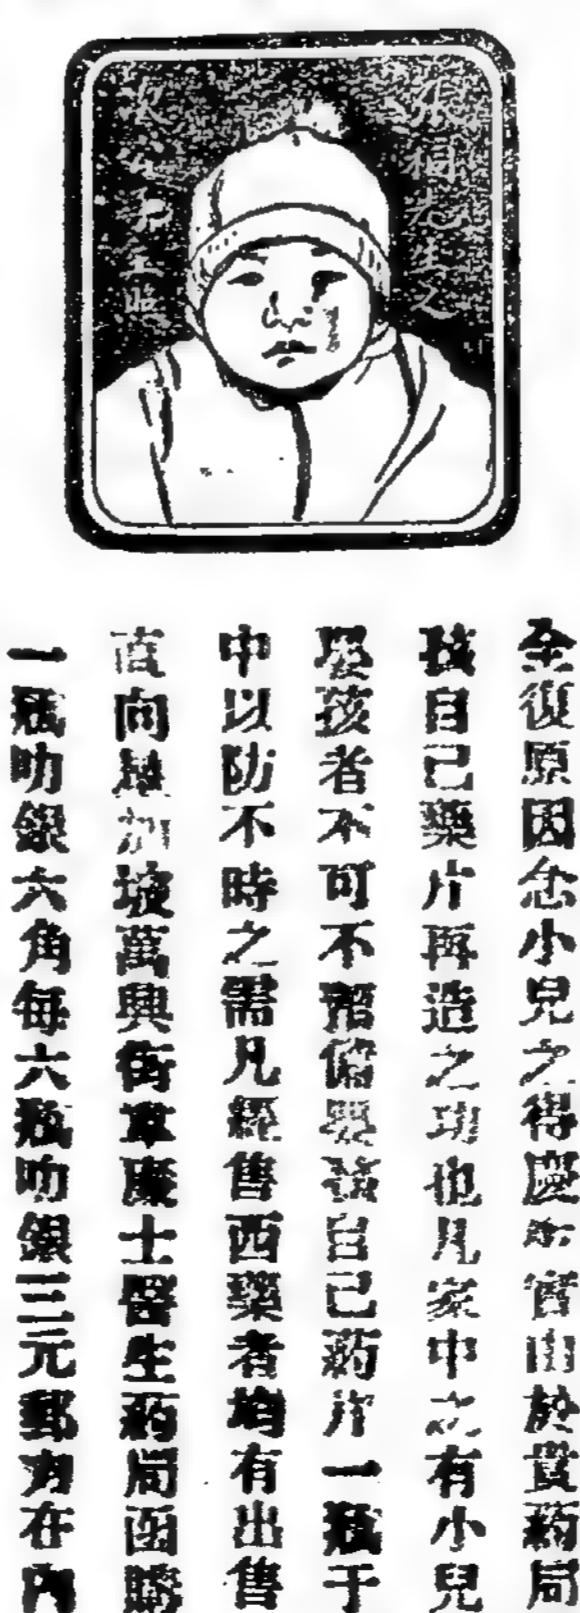 張桐先生之
次公子玉照
全復原因念小兒之得慶實由於貴葯局
孩自己藥片再造之功也凡家中之有小兒
嬰孩者不可不備嬰孩自己葯片一瓶于
中以防不時之需凡經售西藥者均有出售
直向加坡萬興街韋廉士醫生葯局函購
一瓶叻銀六角每六瓶叻銀三元郵力在內